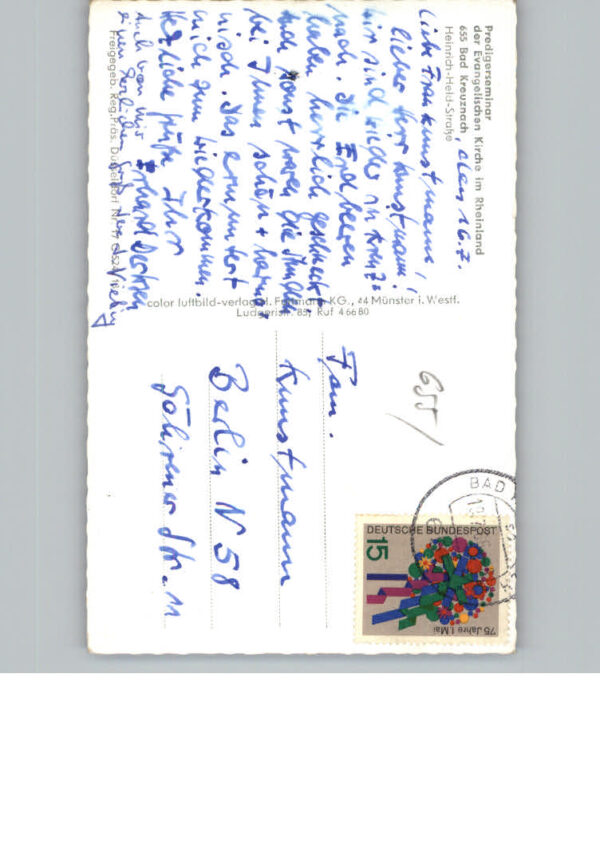 Predigerseminar
der Evangelischen Kirche im Rheinland
655 Bad Kreuznach, den 16.7.
Heinrich-Held-Straße
Liebe Frau Kunstmann,
lieber Herr Kunstmann!
Wir sind wieder in Kreuz-
nach. Die Erdbeeren
haben herrlich geschmeckt
Auch sonst waren die Stunden
bei Ihnen schön + harmo-
nisch. Das ermuntert
mich zum Wiederkommen.
Herzliche Grüße Ihr
Erhard
Auch von mir
Freigegeb. Reg. Präs. Düsseldorf Nr.
color luftbild-verlag KG., 44 Münster i. Westf.
Ludgeristr. 85, Ruf 4 66 80
655/
Fam.
Kunstmann
Berlin N 58
Göhrener Str. 11
BAD
DEUTSCHE BUNDESPOST
15
75 Jahre 1. Mai